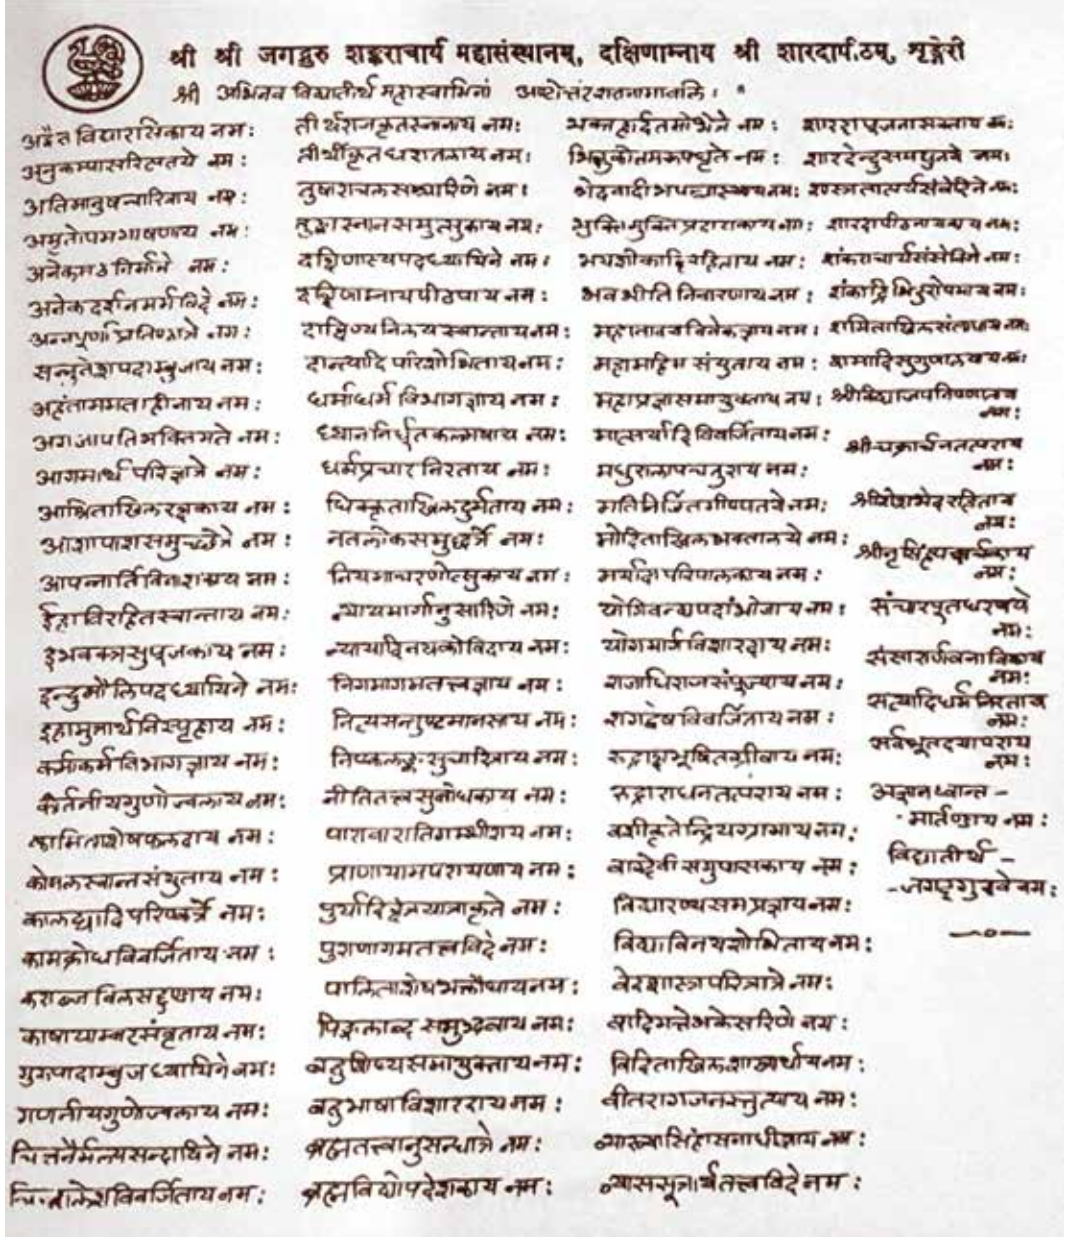 श्री श्री जगद्गुरु शङ्कराचार्य महासंस्थानम्, दक्षिणाम्नाय श्री शारदापीठम्, शृङ्गेरी
श्री अभिनव विद्यातीर्थ महास्वामिनां अष्टोत्तरशतनामावलिः
अद्वैतविद्यारसिकाय नमः
अनुकम्पासरित्पतये नमः
अतिमानुषचारित्राय नमः
अमृतोपमभाषणाय नमः
अनेकमठनिर्मात्रे नमः
अनेकदर्शनमर्मविदे नमः
अन्नपूर्णाप्रतिष्ठात्रे नमः
सन्नुतेशपदाम्बुजाय नमः
अहंताममताहीनाय नमः
अगजापतिभक्तिमते नमः
आगमार्थपरिज्ञात्रे नमः
आश्रिताखिलरक्षकाय नमः
आशापाशसमुच्छेत्रे नमः
आपन्नार्तिविनाशकाय नमः
ईहाविरहितस्वान्ताय नमः
इभवक्त्रसुपूजकाय नमः
इन्दुमौलिपदध्यायिने नमः
इहामुत्रार्थनिस्पृहाय नमः
कर्माकर्मविभागज्ञाय नमः
कीर्तनीयगुणोज्वलाय नमः
कामिताशेषफलदाय नमः
कोमलस्वान्तसंयुताय नमः
कालट्यादिपरिष्कर्त्रे नमः
कामक्रोधविवर्जिताय नमः
कराब्जविलसद्दण्डाय नमः
काषायाम्बरसंवृताय नमः
गुरुपादाम्बुजध्यायिने नमः
गणनीयगुणोज्वलाय नमः
चित्तनैर्मल्यसन्दायिने नमः
चिन्तालेशविवर्जिताय नमः
तीर्थराजकृतस्नानाय नमः
तीर्थीकृतधरातलाय नमः
तुषाराचलसञ्चारिणे नमः
तुङ्गास्नानसमुत्सुकाय नमः
दक्षिणास्यपदध्यायिने नमः
दक्षिणाम्नायपीठपाय नमः
दाक्षिण्यनिलयस्वान्ताय नमः
दान्त्यादिपरिशोभिताय नमः
धर्माधर्मविभागज्ञाय नमः
ध्याननिर्धूतकल्मषाय नमः
धर्मप्रचारनिरताय नमः
धिक्कृताखिलदुर्मताय नमः
नतलोकसमुद्धर्त्रे नमः
नियमाचरणोत्सुकाय नमः
न्यायमार्गानुसारिणे नमः
न्यायादिनयकोविदाय नमः
निगमागमतत्त्वज्ञाय नमः
नित्यसन्तुष्टमानसाय नमः
निष्कलङ्कसुचारित्राय नमः
नीतितत्त्वसुबोधकाय नमः
पारावारातिगम्भीराय नमः
प्राणायामपरायणाय नमः
पुर्यादिक्षेत्रयात्राकृते नमः
पुराणागमतत्त्वविदे नमः
पालिताशेषभक्तौघाय नमः
पिङ्गलाब्द समुद्भवाय नमः
बहुशिष्यसमायुक्ताय नमः
बहुभाषाविशारदाय नमः
ब्रह्मतत्त्वानुसन्धात्रे नमः
ब्रह्मविद्योपदेशकाय नमः
भक्तहार्दतमोभेत्रे नमः
भिक्षुकोत्तमरूपधृते नमः
भेदवादीभपञ्चास्याय नमः
भुक्तिमुक्तिप्रदायकाय नमः
भयशोकादिरहिताय नमः
भवभीतिनिवारणाय नमः
महावाक्यविवेकज्ञाय नमः
महामहिमसंयुताय नमः
महाप्रज्ञासमायुक्ताय नमः
मात्सर्यादिविवर्जिताय नमः
मधुरालापचतुराय नमः
मतिनिर्जितगीष्पतये नमः
मोदिताखिलभक्तालये नमः
मर्यादापरिपालकाय नमः
योगिवन्द्यपदांभोजाय नमः
योगमार्गविशारदाय नमः
राजाधिराजसंपूज्याय नमः
रागद्वेषविवर्जिताय नमः
रुद्राक्षभूषितग्रीवाय नमः
रुद्राराधनतत्पराय नमः
वशीकृतेन्द्रियग्रामाय नमः
वाग्देवीसमुपासकाय नमः
विद्यारण्यसमप्रज्ञाय नमः
विद्याविनयशोभिताय नमः
वेदशास्त्रपरित्रात्रे नमः
वादिमत्तेभकेसरिणे नमः
विदिताखिलशास्त्रार्थाय नमः
वीतरागजनस्तुत्याय नमः
व्याख्यासिंहासनाधीशाय नमः
व्याससूत्रार्थतत्त्वविदे नमः
शारदापूजनासक्ताय नमः
शारदेन्दुसमद्युतये नमः
शास्त्रतात्पर्यसंवेदिने नमः
शारदापीठनायकाय नमः
शंकराचार्यसंसेविने नमः
शंकाद्रिभिदुरोपमाय नमः
शमिताखिलसंतापाय नमः
शमादिसुगुणालयाय नमः
श्रीविद्याजपनिष्णाताय
नमः
श्रीचक्रार्चनतत्पराय
नमः
श्रीशेशभेदरहिताय
नमः
श्रीनृसिंहपदार्चकाय
नमः
संचारपूतधरणये
नमः
संसारार्णवनाविकाय
नमः
सत्यादिधर्मनिरताय
नमः
सर्वभूतदयापराय
नमः
अज्ञानध्वान्त-
मार्तण्डाय नमः
विद्यातीर्थ-
-जगद्गुरवे नमः